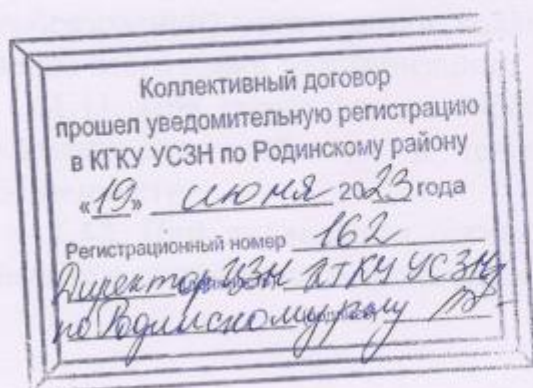 Коллективный договор
прошел уведомительную регистрацию
в КГКУ УСЗН по Родинскому району
«19» июня 2023 года
Регистрационный номер 162
Директор ЦЗН КГКУ УСЗН
по Родинскому р-ну